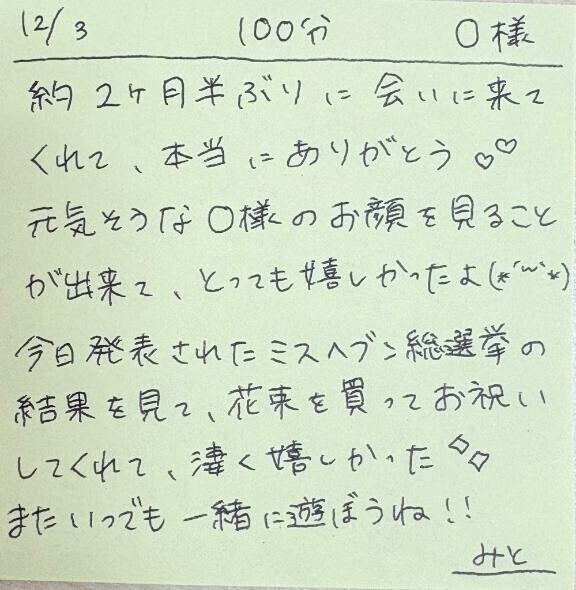 12/3 100分 〇様
約2ヶ月半ぶりに会いに来て
くれて、本当にありがとう♡♡
元気そうな〇様のお顔を見ること
が出来て、とっても嬉しかったよ(*´ω`*)
今日発表されたミスヘブン総選挙の
結果を見て、花束を買ってお祝い
してくれて、凄く嬉しかった◇◇
またいつでも一緒に遊ぼうね!!
みと